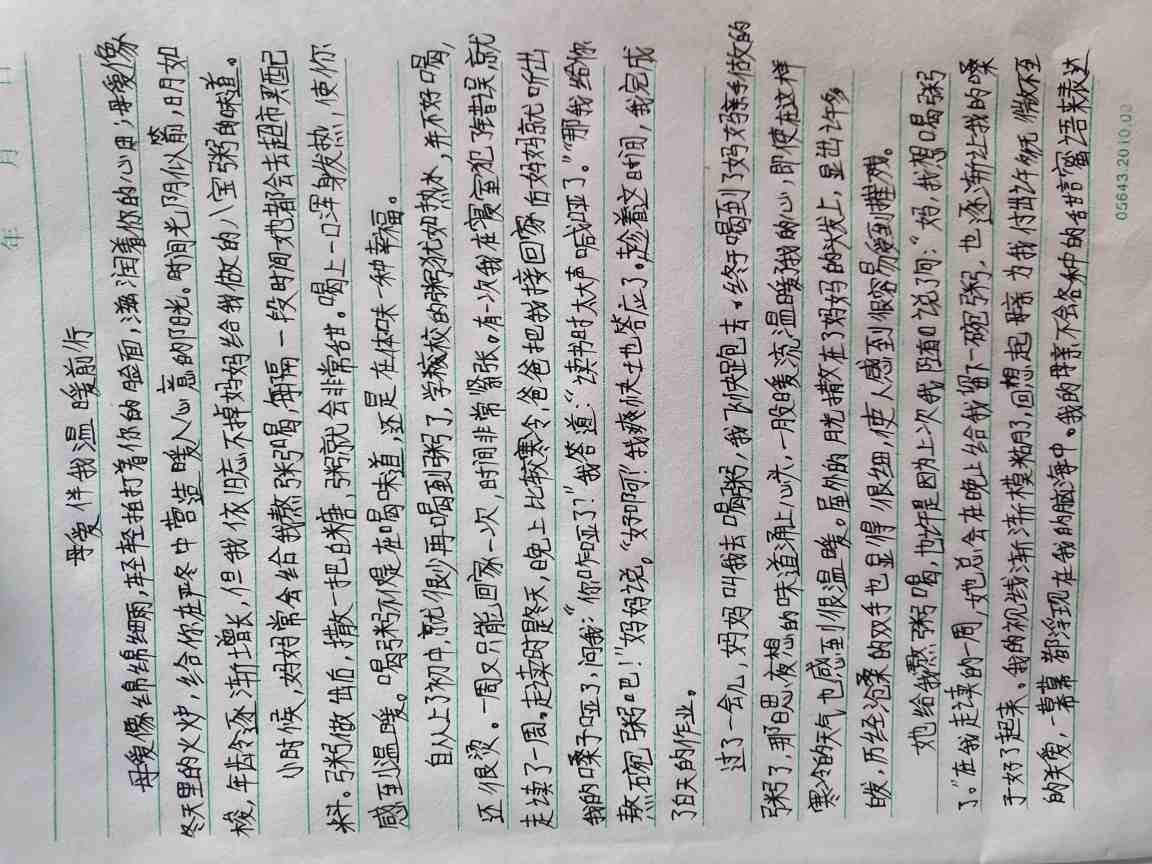 年 月 日
母爱伴我温暖前行
母爱像绵绵细雨，轻轻拍打着你的脸面，滋润着你的心田；母爱像
冬天里的火炉，给你在严冬中营造暖人心意的阳光。时间光阴似箭，日月如
梭，年龄逐渐增长，但我依旧忘不掉妈妈给我做的八宝粥的味道。
小时候，妈妈常会给我熬粥喝，每隔一段时间她都会去超市买配
料。粥做出后，撒一把白糖，粥就会非常甜。喝上一口浑身发热，使你
感到温暖。喝粥不仅是在喝味道，还是在体味一种幸福。
自从上了初中，就很少再喝到粥了，学校的粥犹如热水，并不好喝，
还很烫。一周又只能回家一次，时间非常紧张。有一次我在寝室犯了错误就
走读了一周。走读时是冬天，晚上比较寒冷，爸爸把我接回家后妈妈就听出
我的嗓子哑了，问我：“你咋哑了？”我答道：“读书时太大声喊哑了。”“那我给你
熬碗粥吧！”妈妈说。“好啊！”我爽快地答应了。趁着这时间，我完成
了白天的作业。
过了一会儿，妈妈叫我去喝粥，我飞快跑去。终于喝到了妈妈亲手做的
粥了，那日思夜想的味道涌上心头，一股暖流温暖了我的心，即使在这样
寒冷的天气也感到很温暖。屋外的月光精散在了妈妈的头发上，显出许多
白发，历经沧桑的双手也显得很细，使人感到很容易受到摧残。
她给我熬粥喝，也许是因为上次我随口说了句：“妈，我想喝粥
了。”在我走读的一周，她总会在晚上给我留下一碗粥，也逐渐让我的嗓
子好了起来。我的视线渐渐模糊了，回想起母亲为我付出许多无微不至
的关爱，一幕幕都浮现在我的脑海中。我的母亲不会各种的甜言蜜语来表达
05643.2010.00